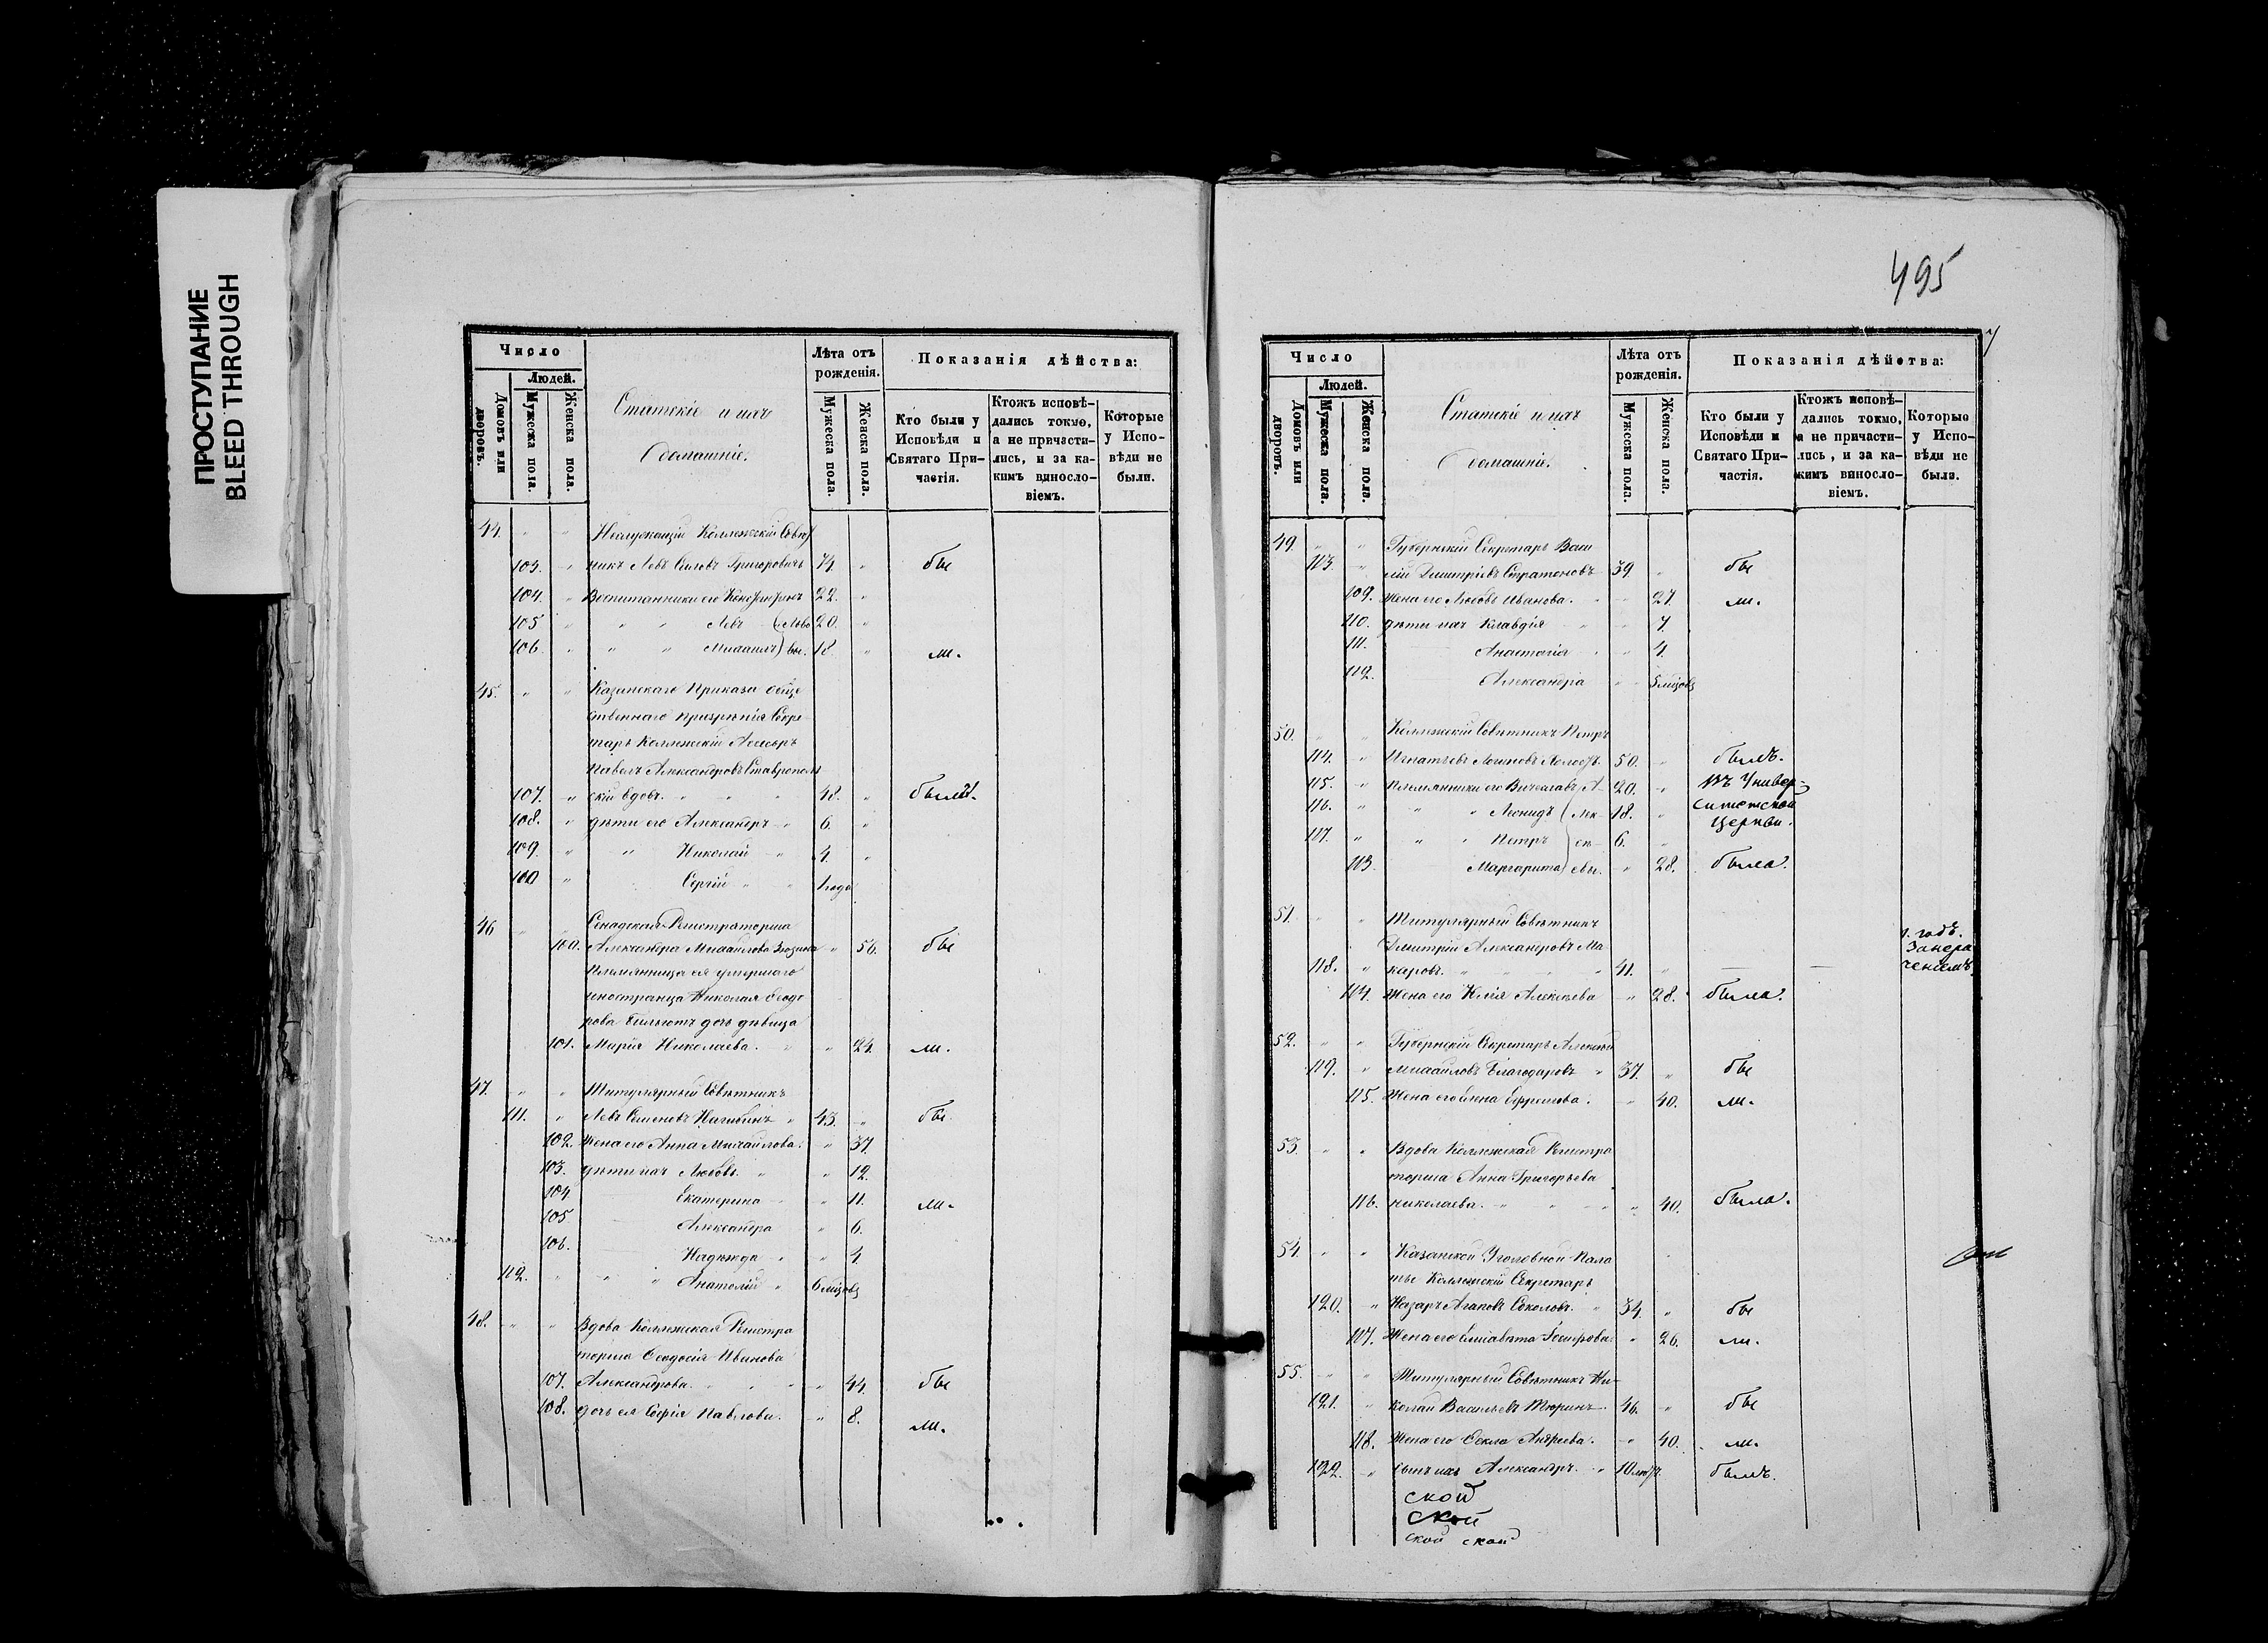 ПРОСТУПАНИЕ
BLEED THROUGH
Число
Людей.
Домовъ или дворовъ.
Мужеска пола.
Женска пола.
Статскіе и ихъ
домашніе.
Лѣта отъ рожденія.
Мужеска пола.
Женска пола.
Показанія дѣйства:
Кто были у Исповѣди и Святаго При-частія.
Ктожъ исповѣ-дались токмо, а не причасти-лись, и за ка-кимъ винособ-віемъ.
Которые у Испо-вѣди не были.
44. Неслужащій Коллежскій Совѣт
103. никъ Левъ Григоровичъ 74. бы
104. Воспитанники его 22.
105 Левъ 20.
106. Михаилъ 18 ли.
45. Казанскаго Приказа обще
ственнаго призрѣнія Секре
тарь Коллежскій Асесоръ
Павелъ Александровъ Ставрополь
107. скій вдовъ. 48. были.
108. дѣти его Александръ 6.
109. Николай 4.
110 Сергій 1 года
46 Регистраторша
100. Александра Михайлова 56. бы
Племянница ея умершаго
иностранца Николая Ѳеодо
рова дочь дѣвица
101. Марія Николаева. 24. ли.
47. Титулярный Совѣтникъ
111. Левъ Семеновъ Нагибинъ 43. бы
102. Жена его Анна Михайлова. 37.
103. дѣти ихъ Любовь 12.
104. Екатерина 11. ли.
105 Александра 6.
106. Надежда 4.
112. Анатолій 6 мѣсцовъ
48. Вдова Коллежская Регистра
торша Ѳеодосія Иванова
107. Александрова. 44. бы
108. дочь ея Софія Павлова. 8. ли.
495
Число
Людей.
Домовъ или дворовъ.
Мужеска пола.
Женска пола.
Статскіе и ихъ
домашніе.
Лѣта отъ рожденія.
Мужеска пола.
Женска пола.
Показанія дѣйства:
Кто были у Исповѣди и Святаго При-частія.
Ктожъ исповѣ-дались токмо, а не причасти-лись, и за ка-кимъ виносло-віемъ.
Которые у Испо-вѣди не были.
49. Губернскій Секретарь Васи
113. лій Димитріевъ Стратоновъ 39. бы
109. Жена его Любовь Иванова. 27. ли.
110. дѣти ихъ Клавдія 7.
111. Анастасія 4.
112. Александра 5 мѣсцовъ
50. Коллежскій Совѣтникъ Петръ
114. Игнатьевъ 50. былъ.
115. Племянники его Вячеславъ 20. въ Универ-
116. Леонидъ 18. ситетской
117. Петръ 6. Церкви.
113. Маргарита 28. была.
51. Титулярный Совѣтникъ
Димитрій Александровъ Ма
118. каровъ. 41. 1. годъ.
114. Жена его Юлія Алексѣева 28. была.
52. Губернскій Секретарь Алексѣй
119. Михайловъ Благодаровъ 37. бы
115. Жена его Елена Ефремова. 40. ли.
53. Вдова Коллежская Регистра
торша Анна Григорьева
116. Николаева. 40. была.
54. Казанской Уголовной Пала
ты Коллежскій Секретарь
120. Назаръ Агаповъ Соколовъ. 34. бы
117. Жена его Елисавета 26. ли.
55. Титулярный Совѣтникъ Ни-
121. колай Васильевъ Тюринъ. 46. бы
118. Жена его Ѳекла Андреева. 40. ли.
122. сынъ ихъ Александръ. 10 былъ.
ской
ской
ской ской